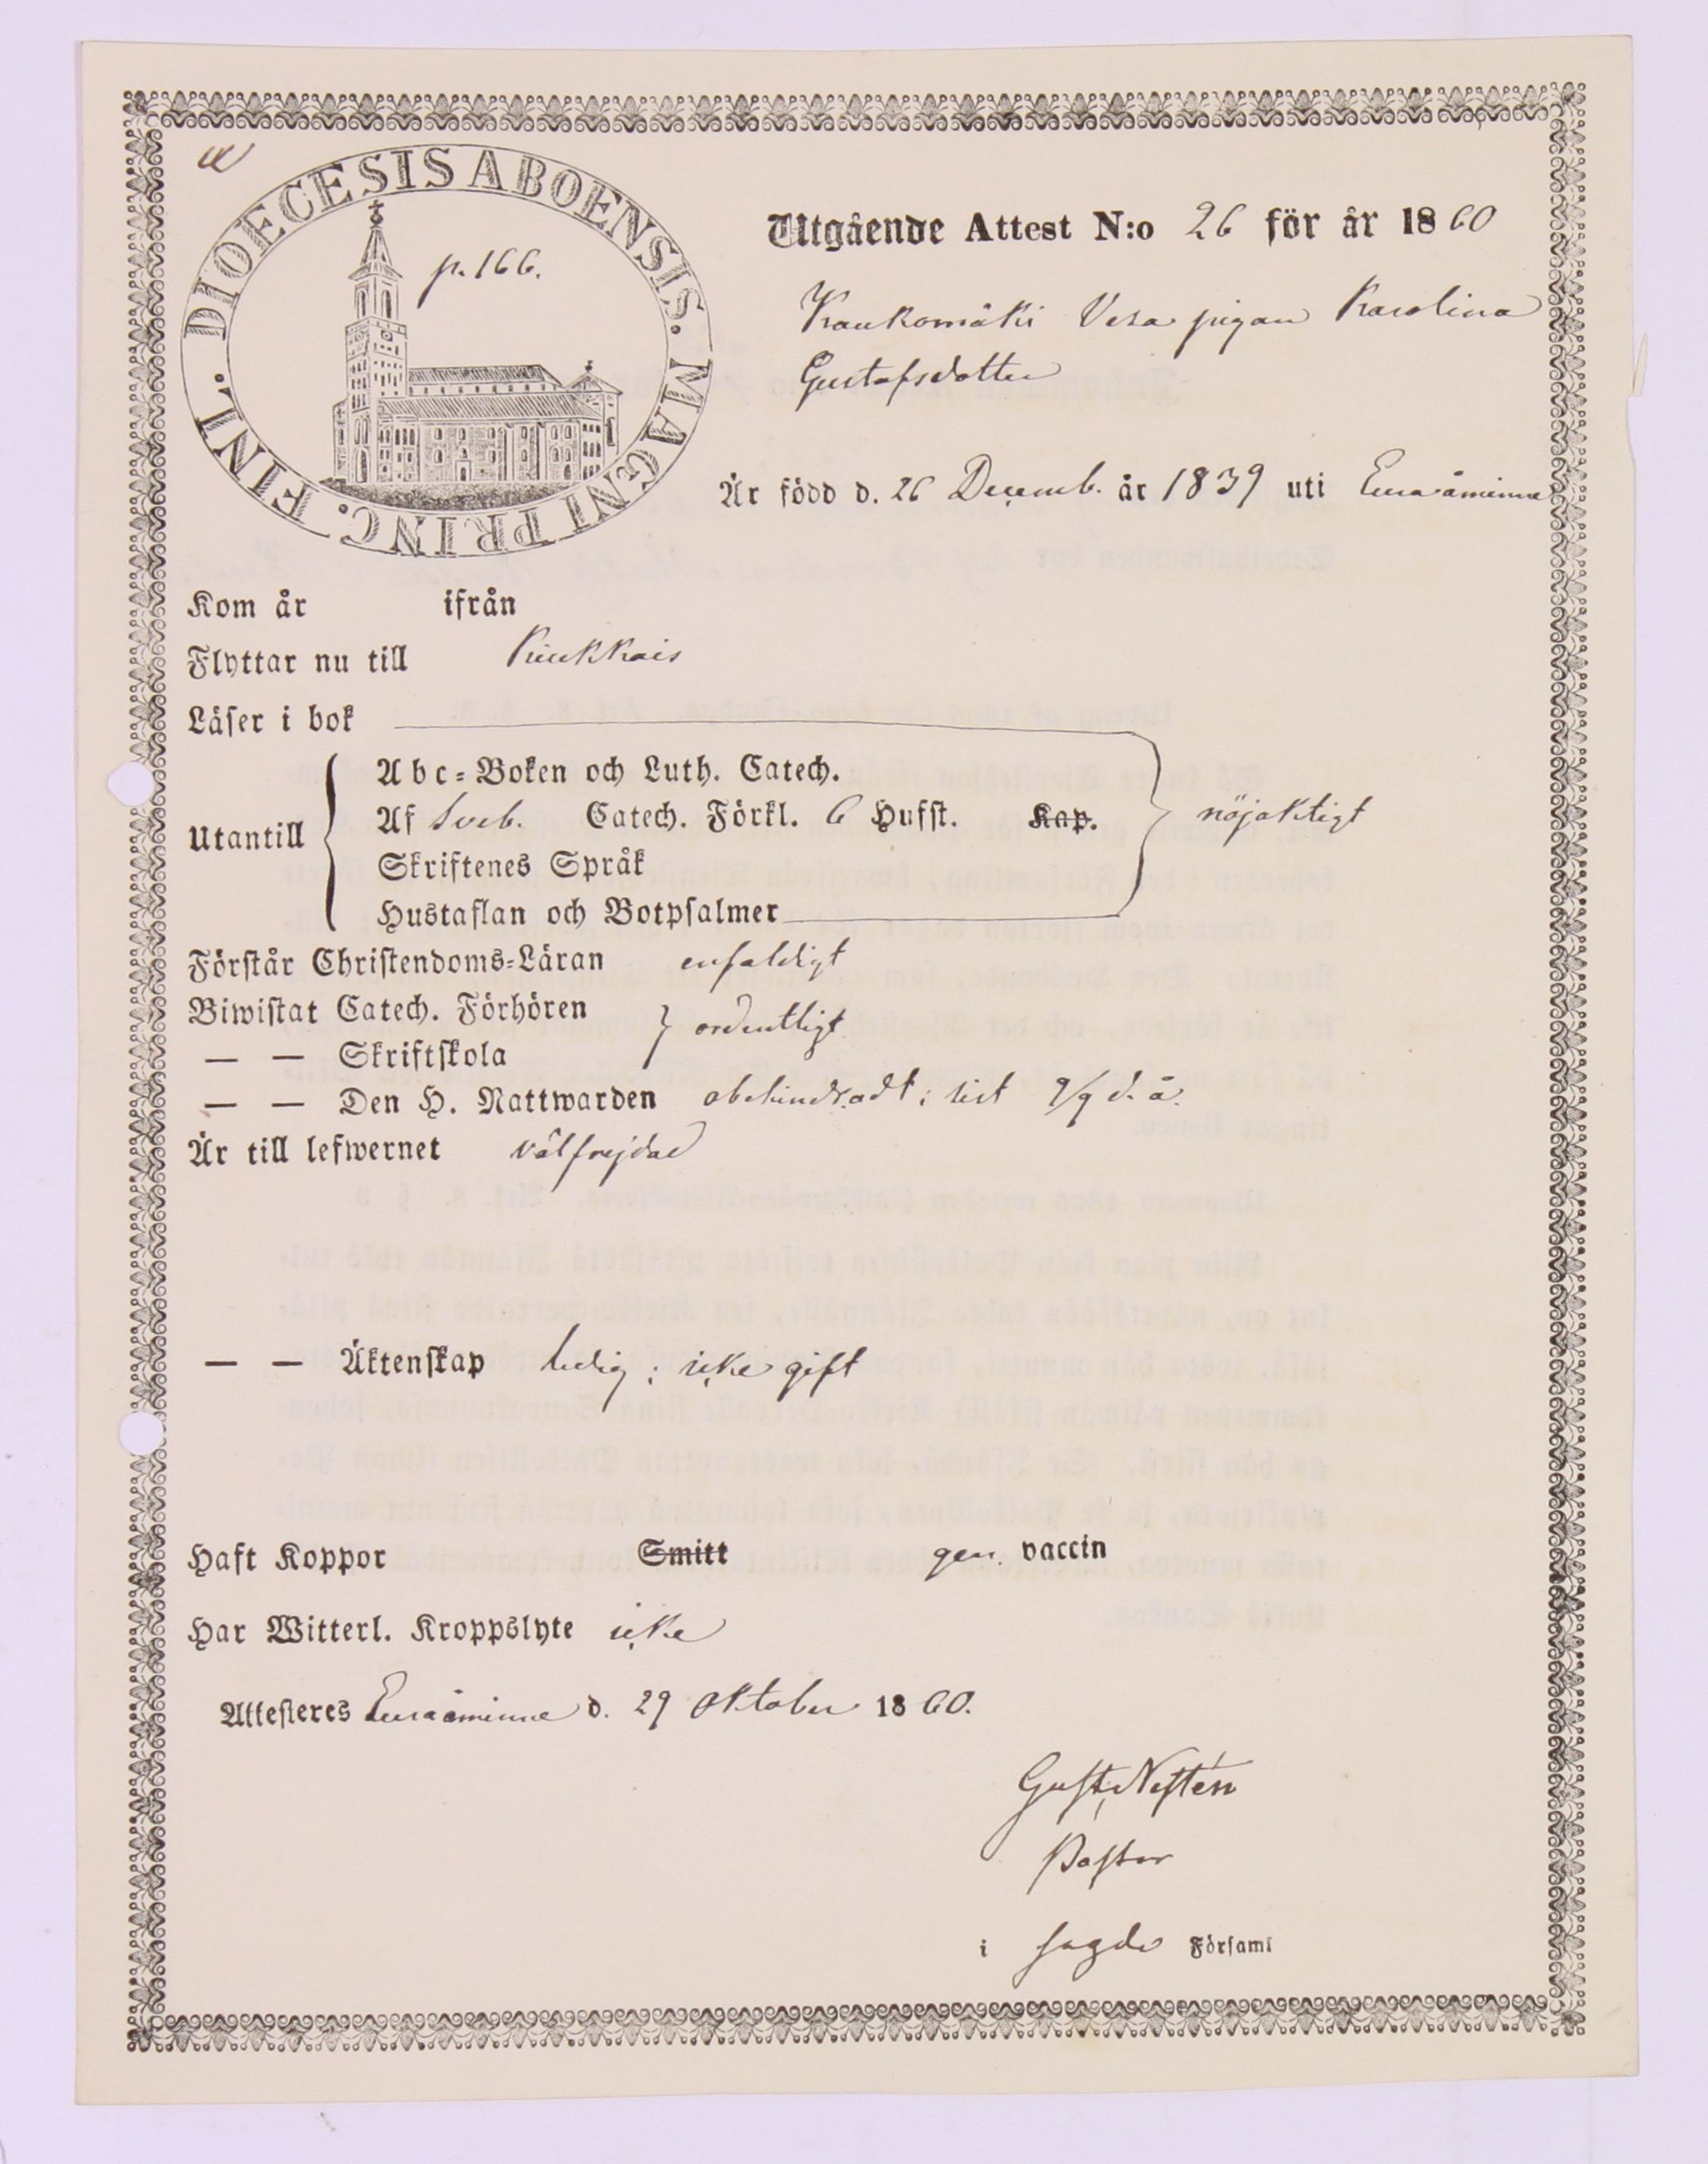 DIOECESIS ABOENSIS. MAGNI PRINC. FINL.
p. 166.
Utgående Attest N:o 26 för år 1860
Kaukomäki Vesa pigan Karolina
Gustafsdotter
Är född d. 26 Decemb. år 1839 uti Euraåminne
Kom år ifrån
Flyttar nu till Kiukkais
Läser i bok
Abc=Boken och Luth. Catech.
Utantill Af Sveb. Catech. Förkl. 6 Hufst. Kap. nöjaktigt
Skriftenes Språk
Hustaflan och Botpsalmer
Förstår Christendoms=Läran enfaldigt
Biwistat Catech. Förhören
ordentligt
— — Skriftskola
— — Den H. Nattwarden obehindradt; sist 9/9 d. å.
Är till lefwernet välfrejdad
— — Äktenskap ledig; icke gift
Haft Koppor Smitt gen. vaccin
Har Witterl. Kroppslyte icke
Attesteres Euraåminne d. 29 Oktober 1860.
Gust. Neftén
Pastor
i sagde Församl